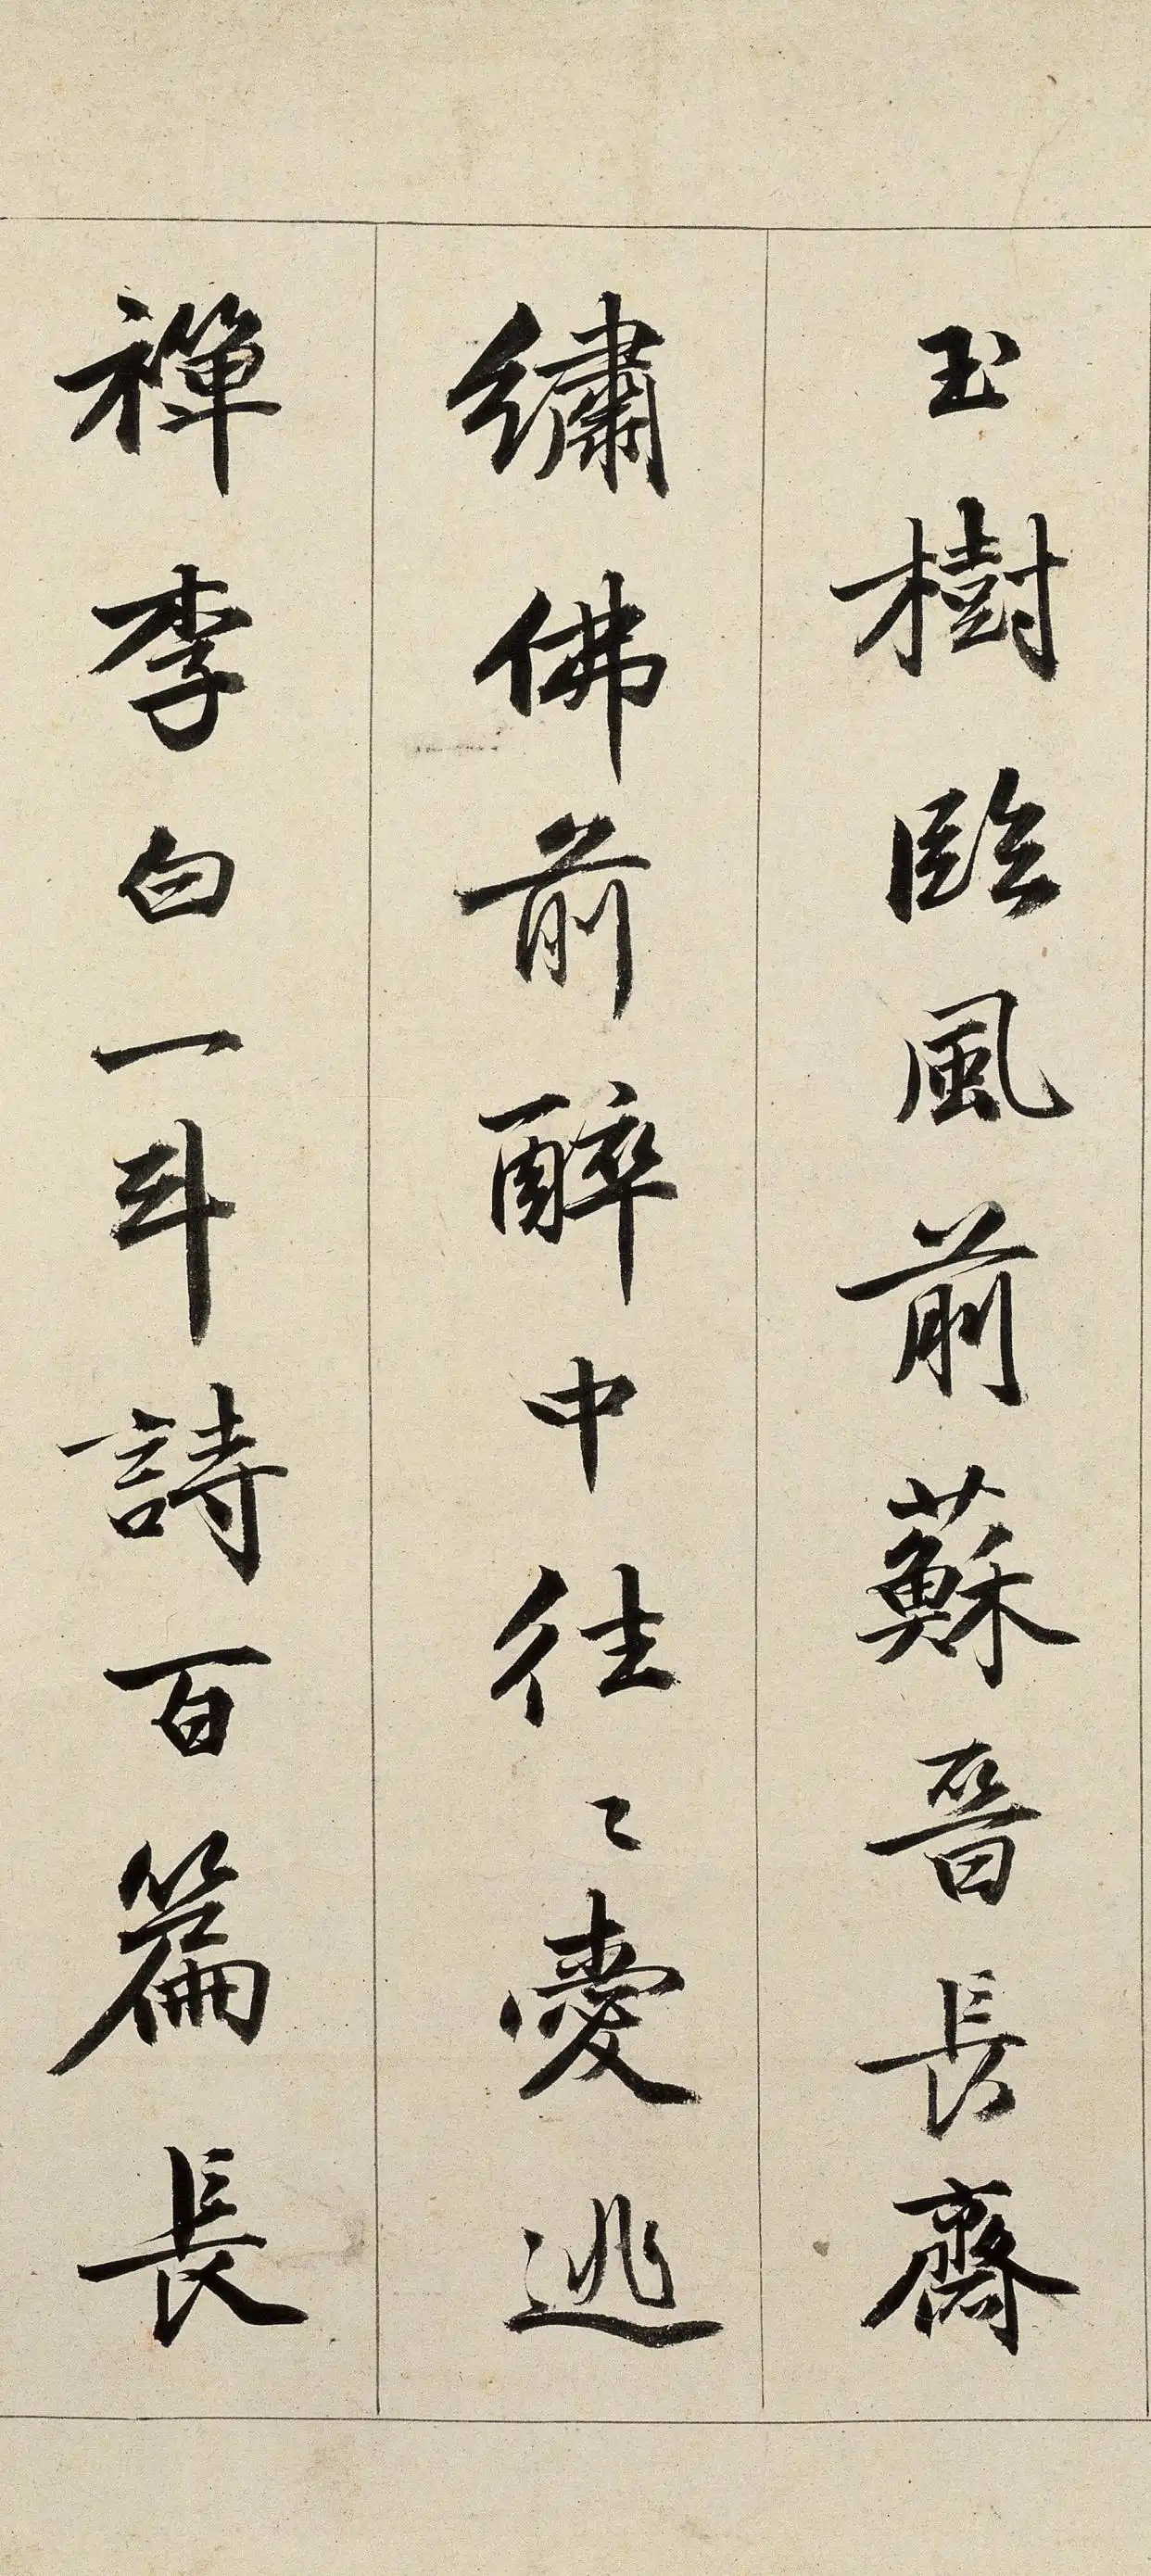 玉樹臨風前蘇晉長齋
繡佛前醉中往〻愛逃
禪李白一斗詩百篇長